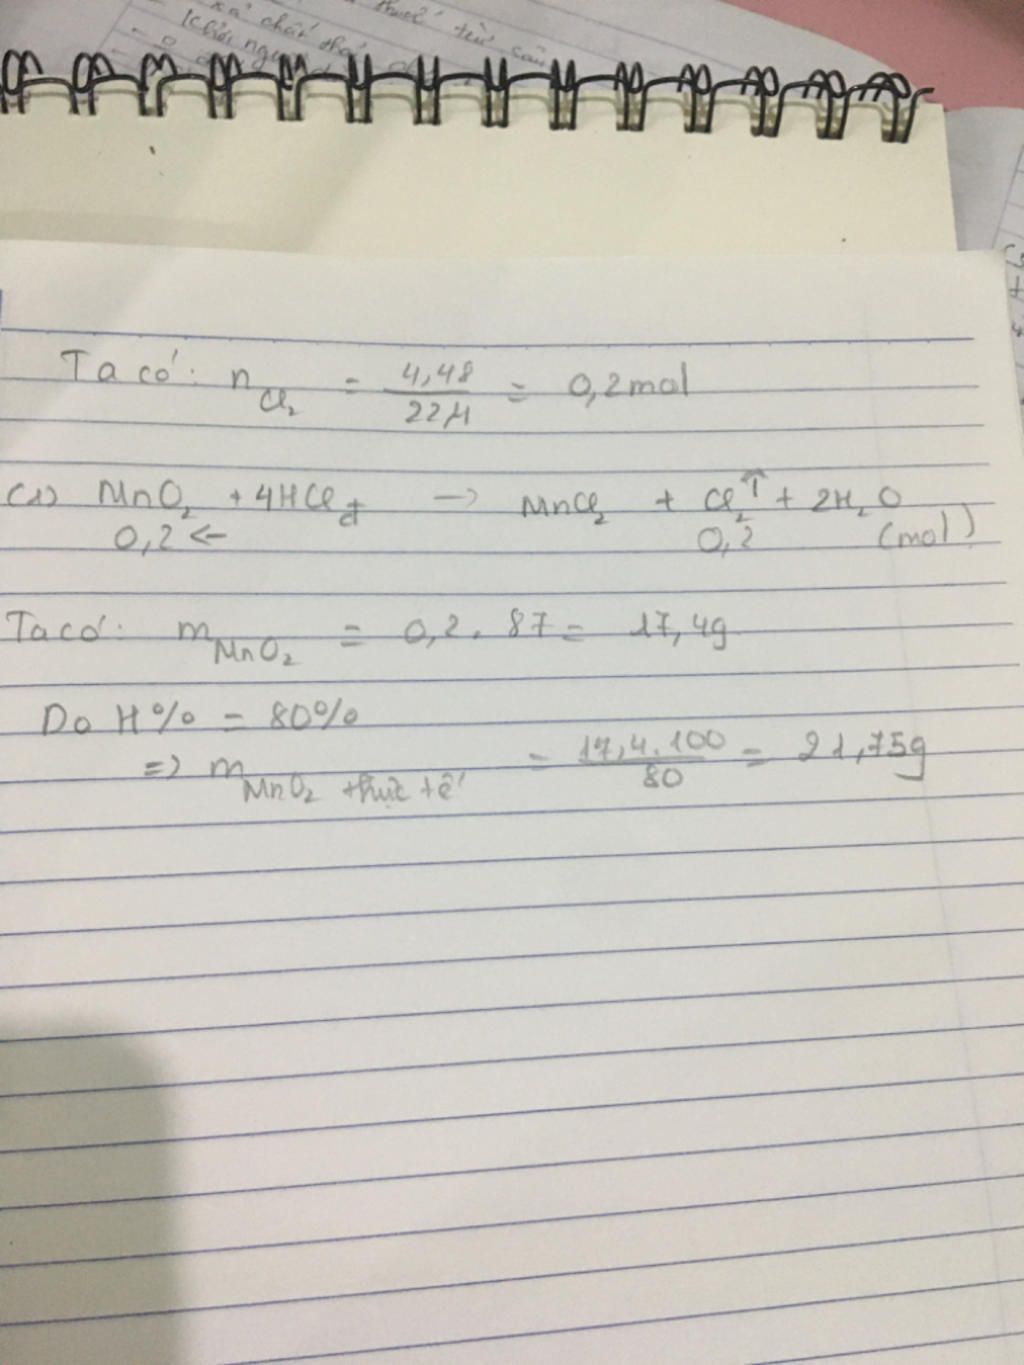 xả chất thải
khỏi
thuốc từ
Ta có: n Cl₂ = 4,48 / 22,4 = 0,2 mol
(1) MnO₂ + 4HCl đ → MnCl₂ + Cl₂↑ + 2H₂O
0,2 ← 0,2 (mol)
Ta có: m MnO₂ = 0,2 . 87 = 17,4g
Do H% = 80%
=> m MnO₂ thực tế = 17,4.100 / 80 = 21,75g